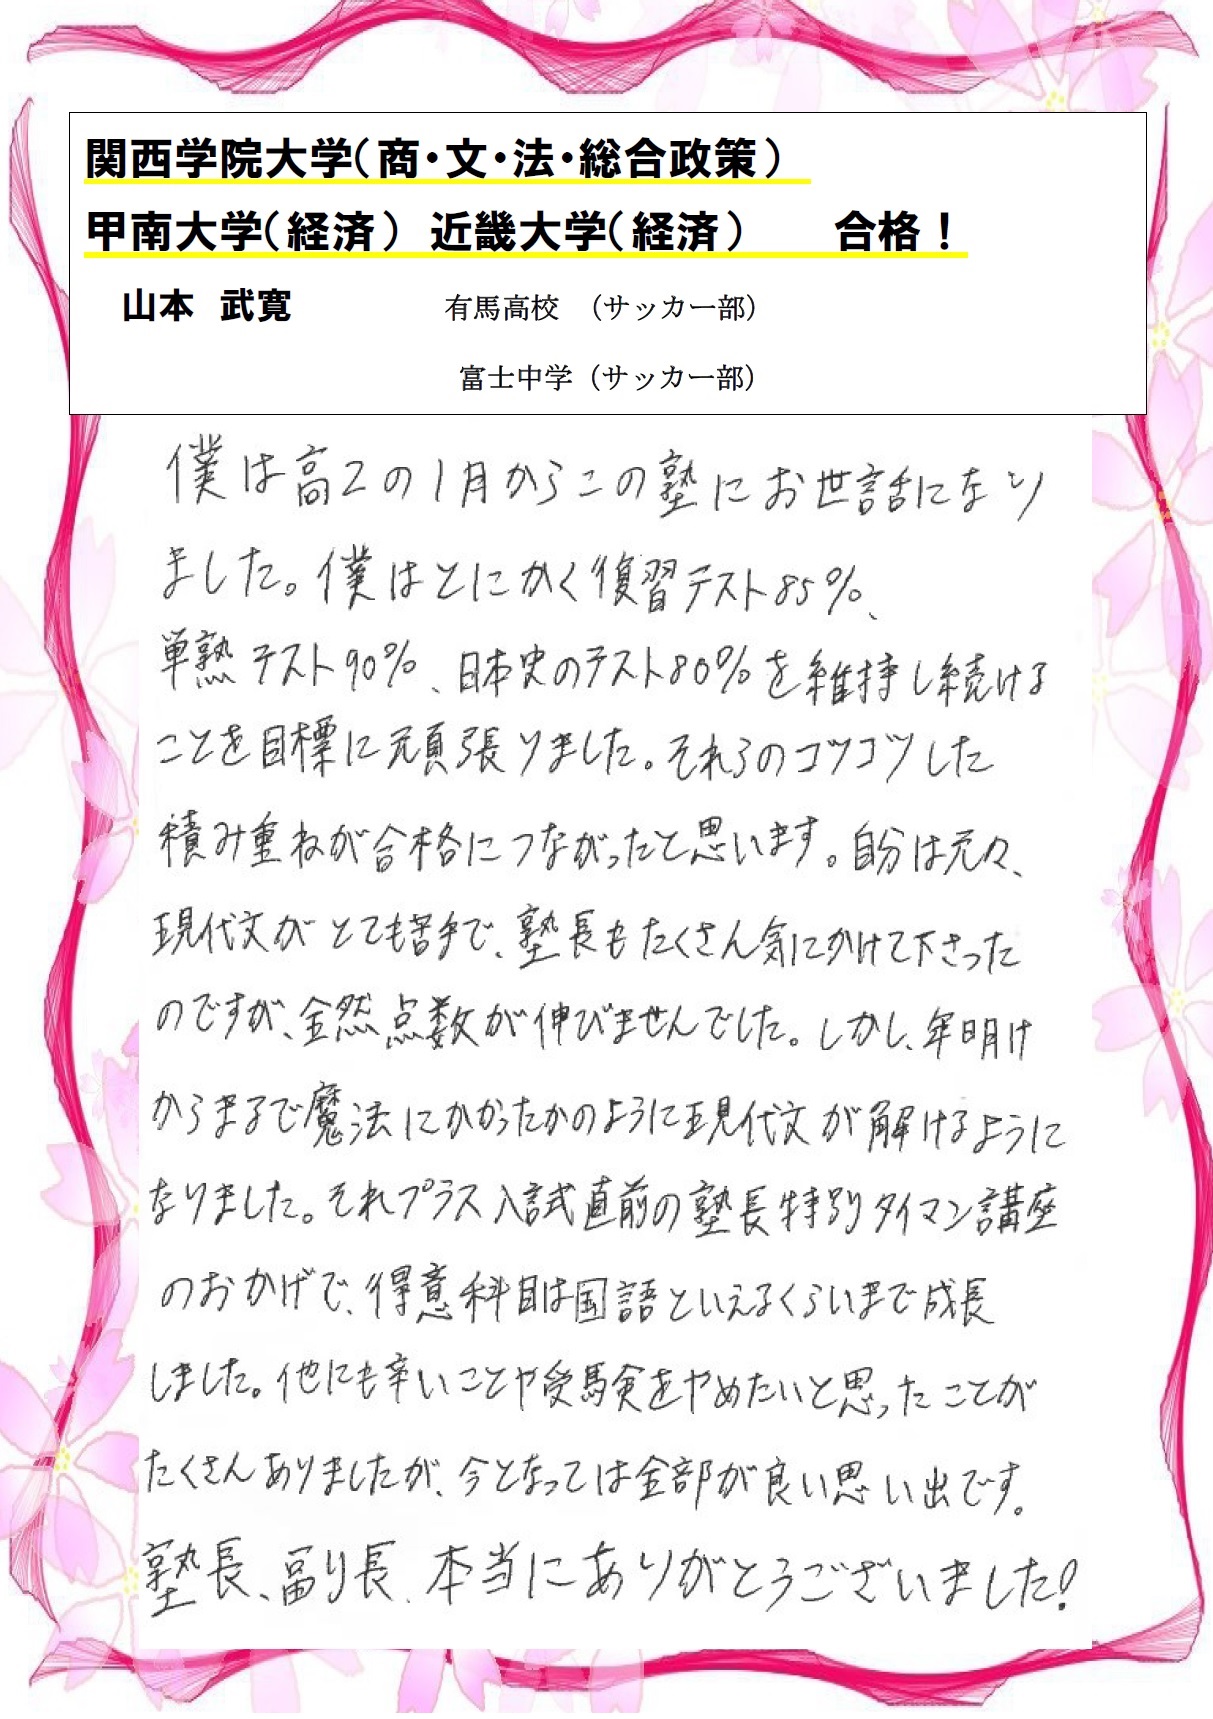 関西学院大学（商・文・法・総合政策）
甲南大学（経済） 近畿大学（経済） 合格！
山本 武寛 有馬高校 （サッカー部）
富士中学（サッカー部）
僕は高2の1月からこの塾にお世話になり
ました。僕はとにかく復習テスト85%、
単熟テスト90%、日本史のテスト80%を維持し続ける
ことを目標に頑張りました。それらのコツコツした
積み重ねが合格につながったと思います。自分は元々、
現代文がとても苦手で、塾長もたくさん気にかけて下さった
のですが、全然点数が伸びませんでした。しかし、年明け
からまるで魔法にかかったかのように現代文が解けるように
なりました。それプラス入試直前の塾長特別タイマン講座
のおかげで、得意科目は国語といえるくらいまで成長
しました。他にも辛いことや受験をやめたいと思ったことが
たくさんありましたが、今となっては全部が良い思い出です。
塾長、副長、本当にありがとうございました!